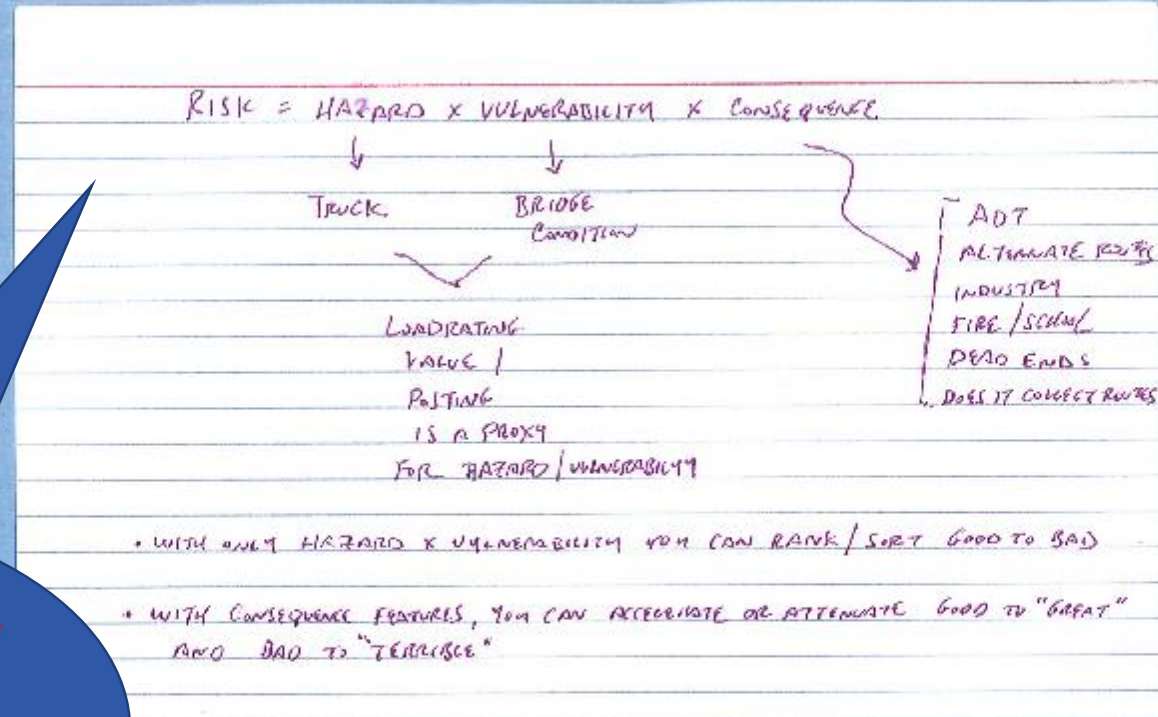 RISK = HAZARD x VULNERABILITY x CONSEQUENCE
TRUCK
BRIDGE
CONDITION
LOADRATING
VALUE /
POSTING
IS A PROXY
FOR HAZARD / VULNERABILITY
ADT
ALTERNATE ROUTES
INDUSTRY
FIRE / SCHOOL
DEAD ENDS
DOES IT COLLECT ROUTES
• WITH ONLY HAZARD x VULNERABILITY YOU CAN RANK / SORT GOOD TO BAD
• WITH CONSEQUENCE FEATURES, YOU CAN ACCELERATE OR ATTENUATE GOOD TO "GREAT"
AND BAD TO "TERRIBLE"